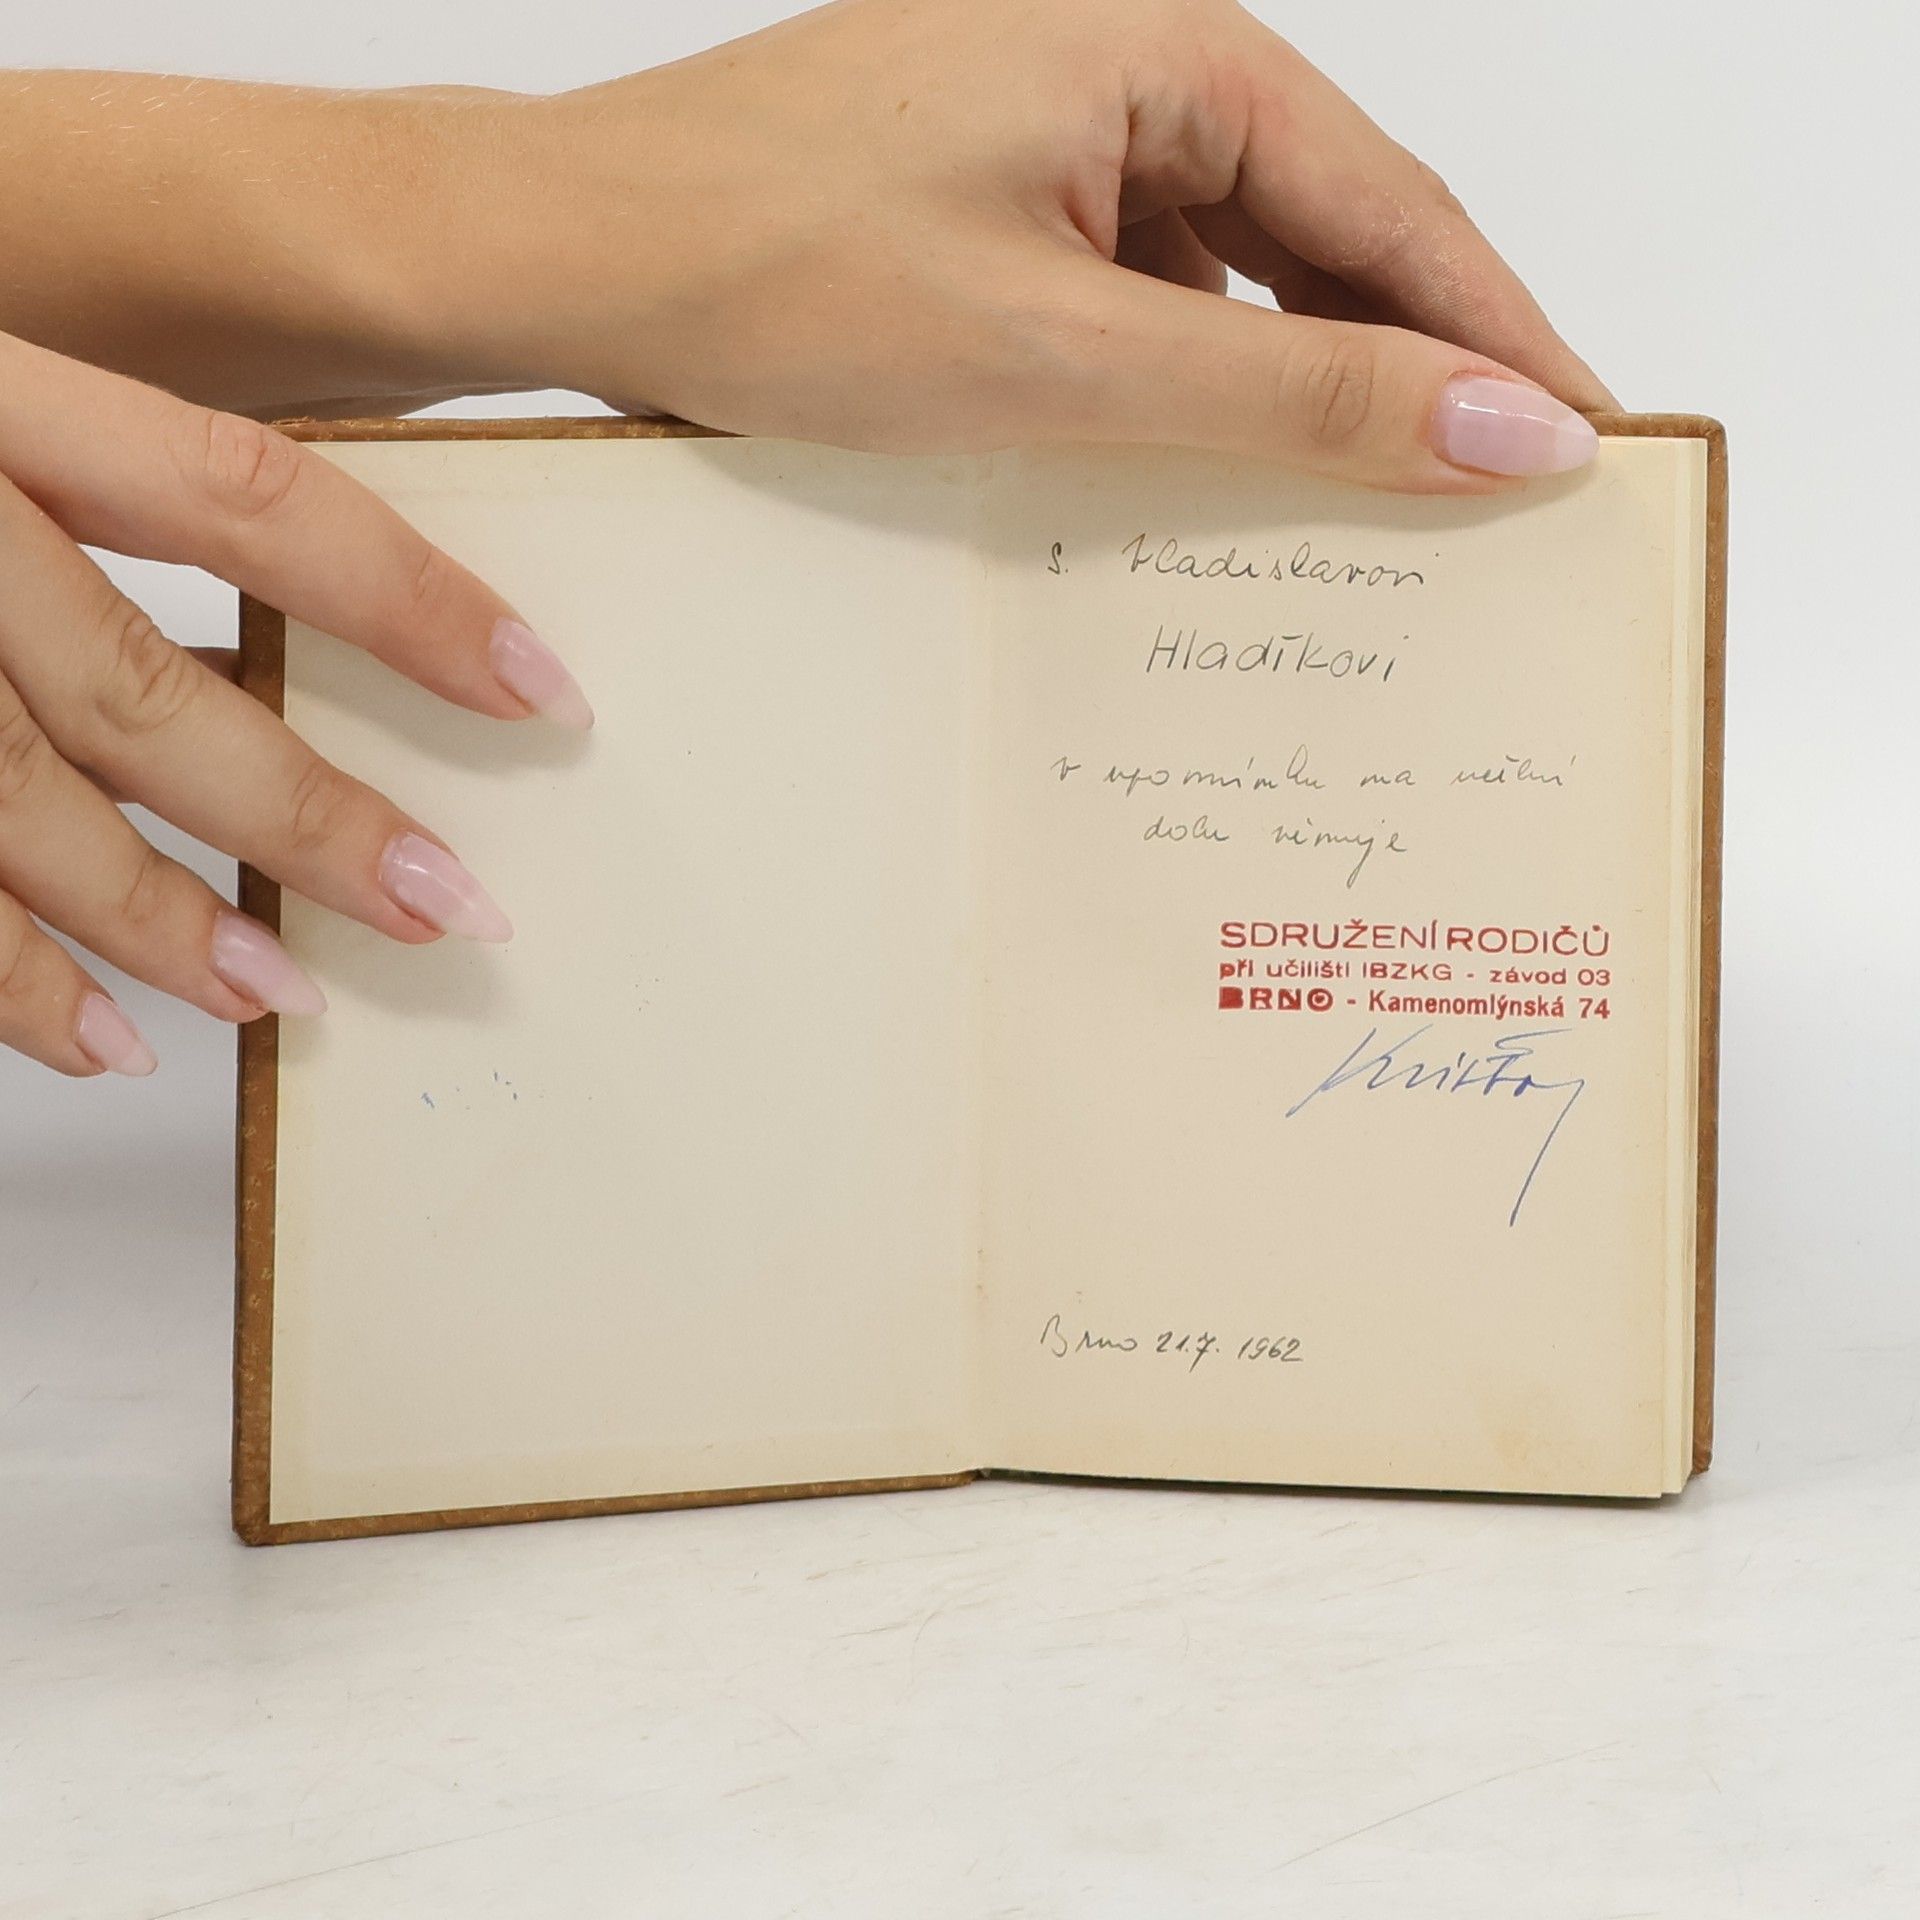 s. Vladislavovi
Hladíkovi
v upomínku na učební
dobu věnuje
SDRUŽENÍ RODIČŮ
při učilišti IBZKG - závod 03
BRNO - Kamenomlýnská 74
Brno 21.7. 1962